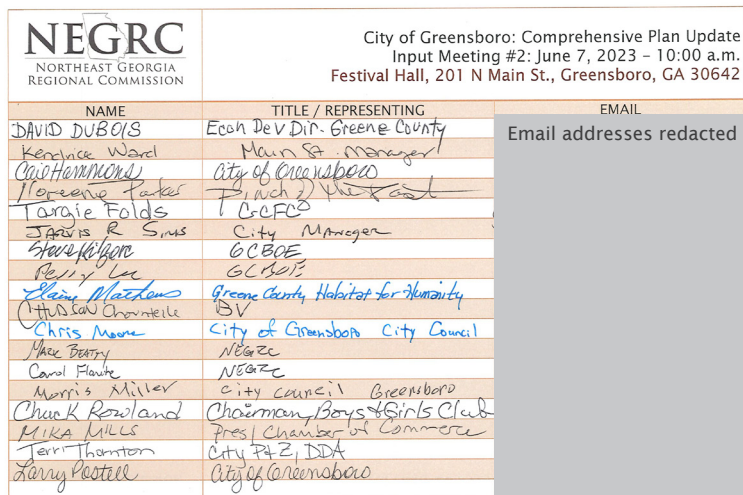 NEGRC
NORTHEAST GEORGIA
REGIONAL COMMISSION
City of Greensboro: Comprehensive Plan Update
Input Meeting #2: June 7, 2023 – 10:00 a.m.
Festival Hall, 201 N Main St., Greensboro, GA 30642
NAME TITLE / REPRESENTING EMAIL
Email addresses redacted
DAVID DUBOIS Econ Dev Dir. Greene County
Kendrice Ward Main St. Manager
Gail Hammons City of Greensboro
Noreene Parker Pinch of the Past
Targie Folds GCFC
JARVIS R SIMS City Manager
Steve Kilgore GCBOE
Perry Lu GCBOE
Elaine Mathews Greene County Habitat for Humanity
HUDSON BV
Chris Moore City of Greensboro City Council
MARK BEATTY NEGRC
Carol Flaute NEGRC
Morris Miller City Council Greensboro
Chuck Rowland Chairman, Boys & Girls Club
MIKA MILLS Pres/Chamber of Commerce
Terri Thornton City P&Z, DDA
Larry Postell City of Greensboro